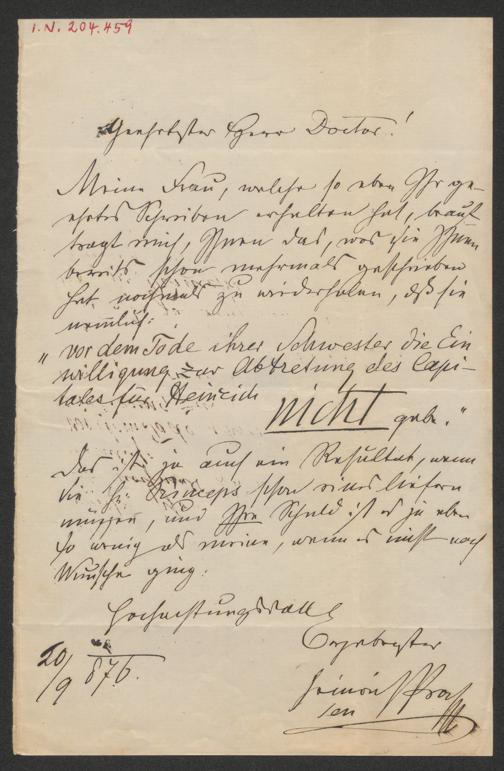 I.N. 204.459
Geehrtester Herr Doctor!
Meine Frau, welche so eben Ihr ge-
ehrtes Schreiben erhalten hat, beauf
tragt mich, Ihnen das, was sie Ihnen
bereits schon mehrmals geschrieben
hat nochmals zu wiederholen, daß sie
nemlich:
"vor dem Tode ihrer Schwester die Ein
willigung zur Abtretung des Capi-
tales für Heinrich
nicht gebe."
Das ist ja auch ein Resultat, wenn
Sie Hr. Princeps schon eines liefern
müssen und Ihre Schuld ist es ja eben
so wenig als meine, wenn es nicht nach
Wunsche ging.
Hochachtungsvoll
Ergebenster
20/9 876.
Heinrich
sen